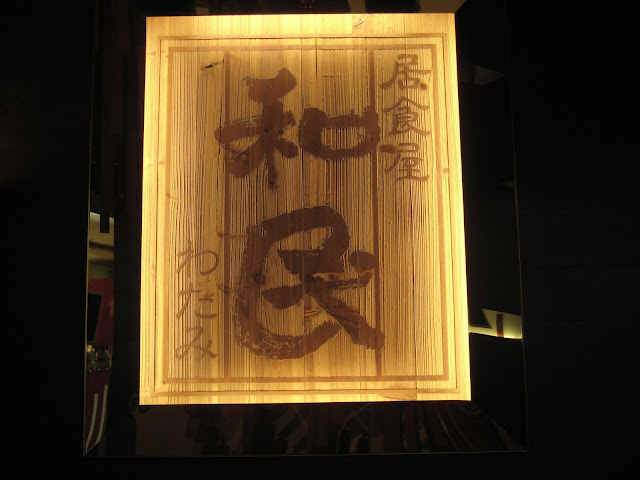 居食屋
和民
わたみ